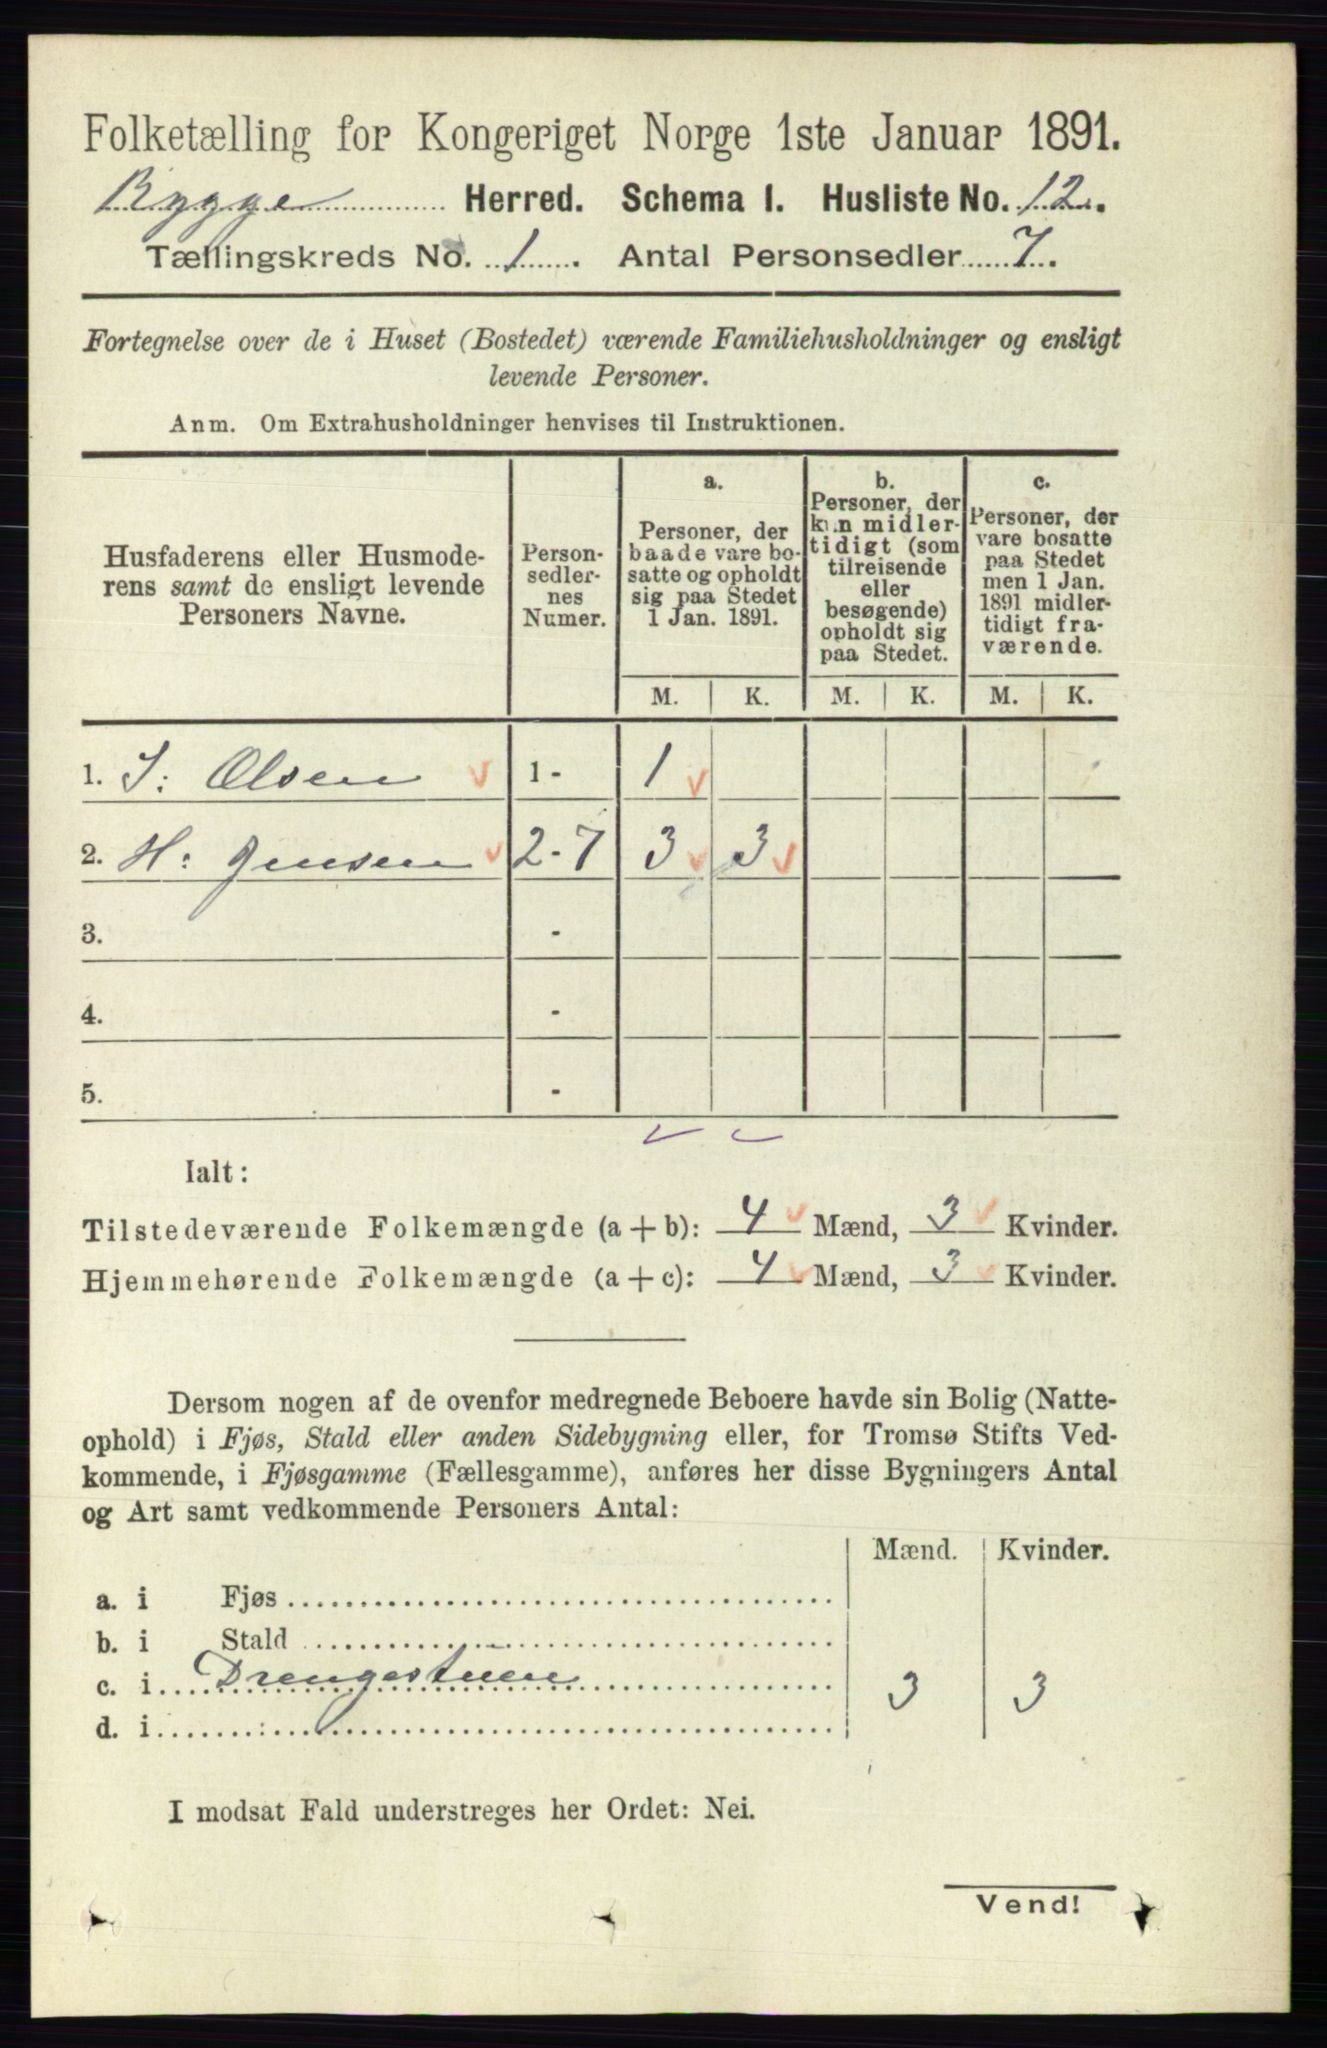 Folketælling for Kongeriget Norge 1ste Januar 1891.
Rygge Herred. Schema I. Husliste No. 12.
Tællingskreds No. 1. Antal Personsedler 7.
Fortegnelse over de i Huset (Bostedet) værende Familiehusholdninger og ensligt
levende Personer.
Anm. Om Extrahusholdninger henvises til Instruktionen.
Husfaderens eller Husmode-
rens samt de ensligt levende
Personers Navne.
Person-
sedler-
nes
Numer.
a.
Personer, der
baade vare bo-
satte og opholdt
sig paa Stedet
1 Jan. 1891.
b.
Personer, der
kun midler-
tidigt (som
tilreisende
eller
besøgende)
opholdt sig
paa Stedet.
c.
Personer, der
vare bosatte
paa Stedet
men 1 Jan.
1891 midler-
tidigt fra-
værende.
M. K. M. K. M. K.
1. J: Olsen 1 - 1
2. H: Jensen 2-7 3 3
3. -
4. -
5. -
Ialt:
Tilstedeværende Folkemængde (a + b): 4 Mænd, 3 Kvinder.
Hjemmehørende Folkemængde (a + c): 4 Mænd, 3 Kvinder.
Dersom nogen af de ovenfor medregnede Beboere havde sin Bolig (Natte-
ophold) i Fjøs, Stald eller anden Sidebygning eller, for Tromsø Stifts Ved-
kommende, i Fjøsgamme (Fællesgamme), anføres her disse Bygningers Antal
og Art samt vedkommende Personers Antal:
Mænd. Kvinder.
a. i Fjøs
b. i Stald
c. i Drengestuen 3 3
d. i
I modsat Fald understreges her Ordet: Nei.
Vend!